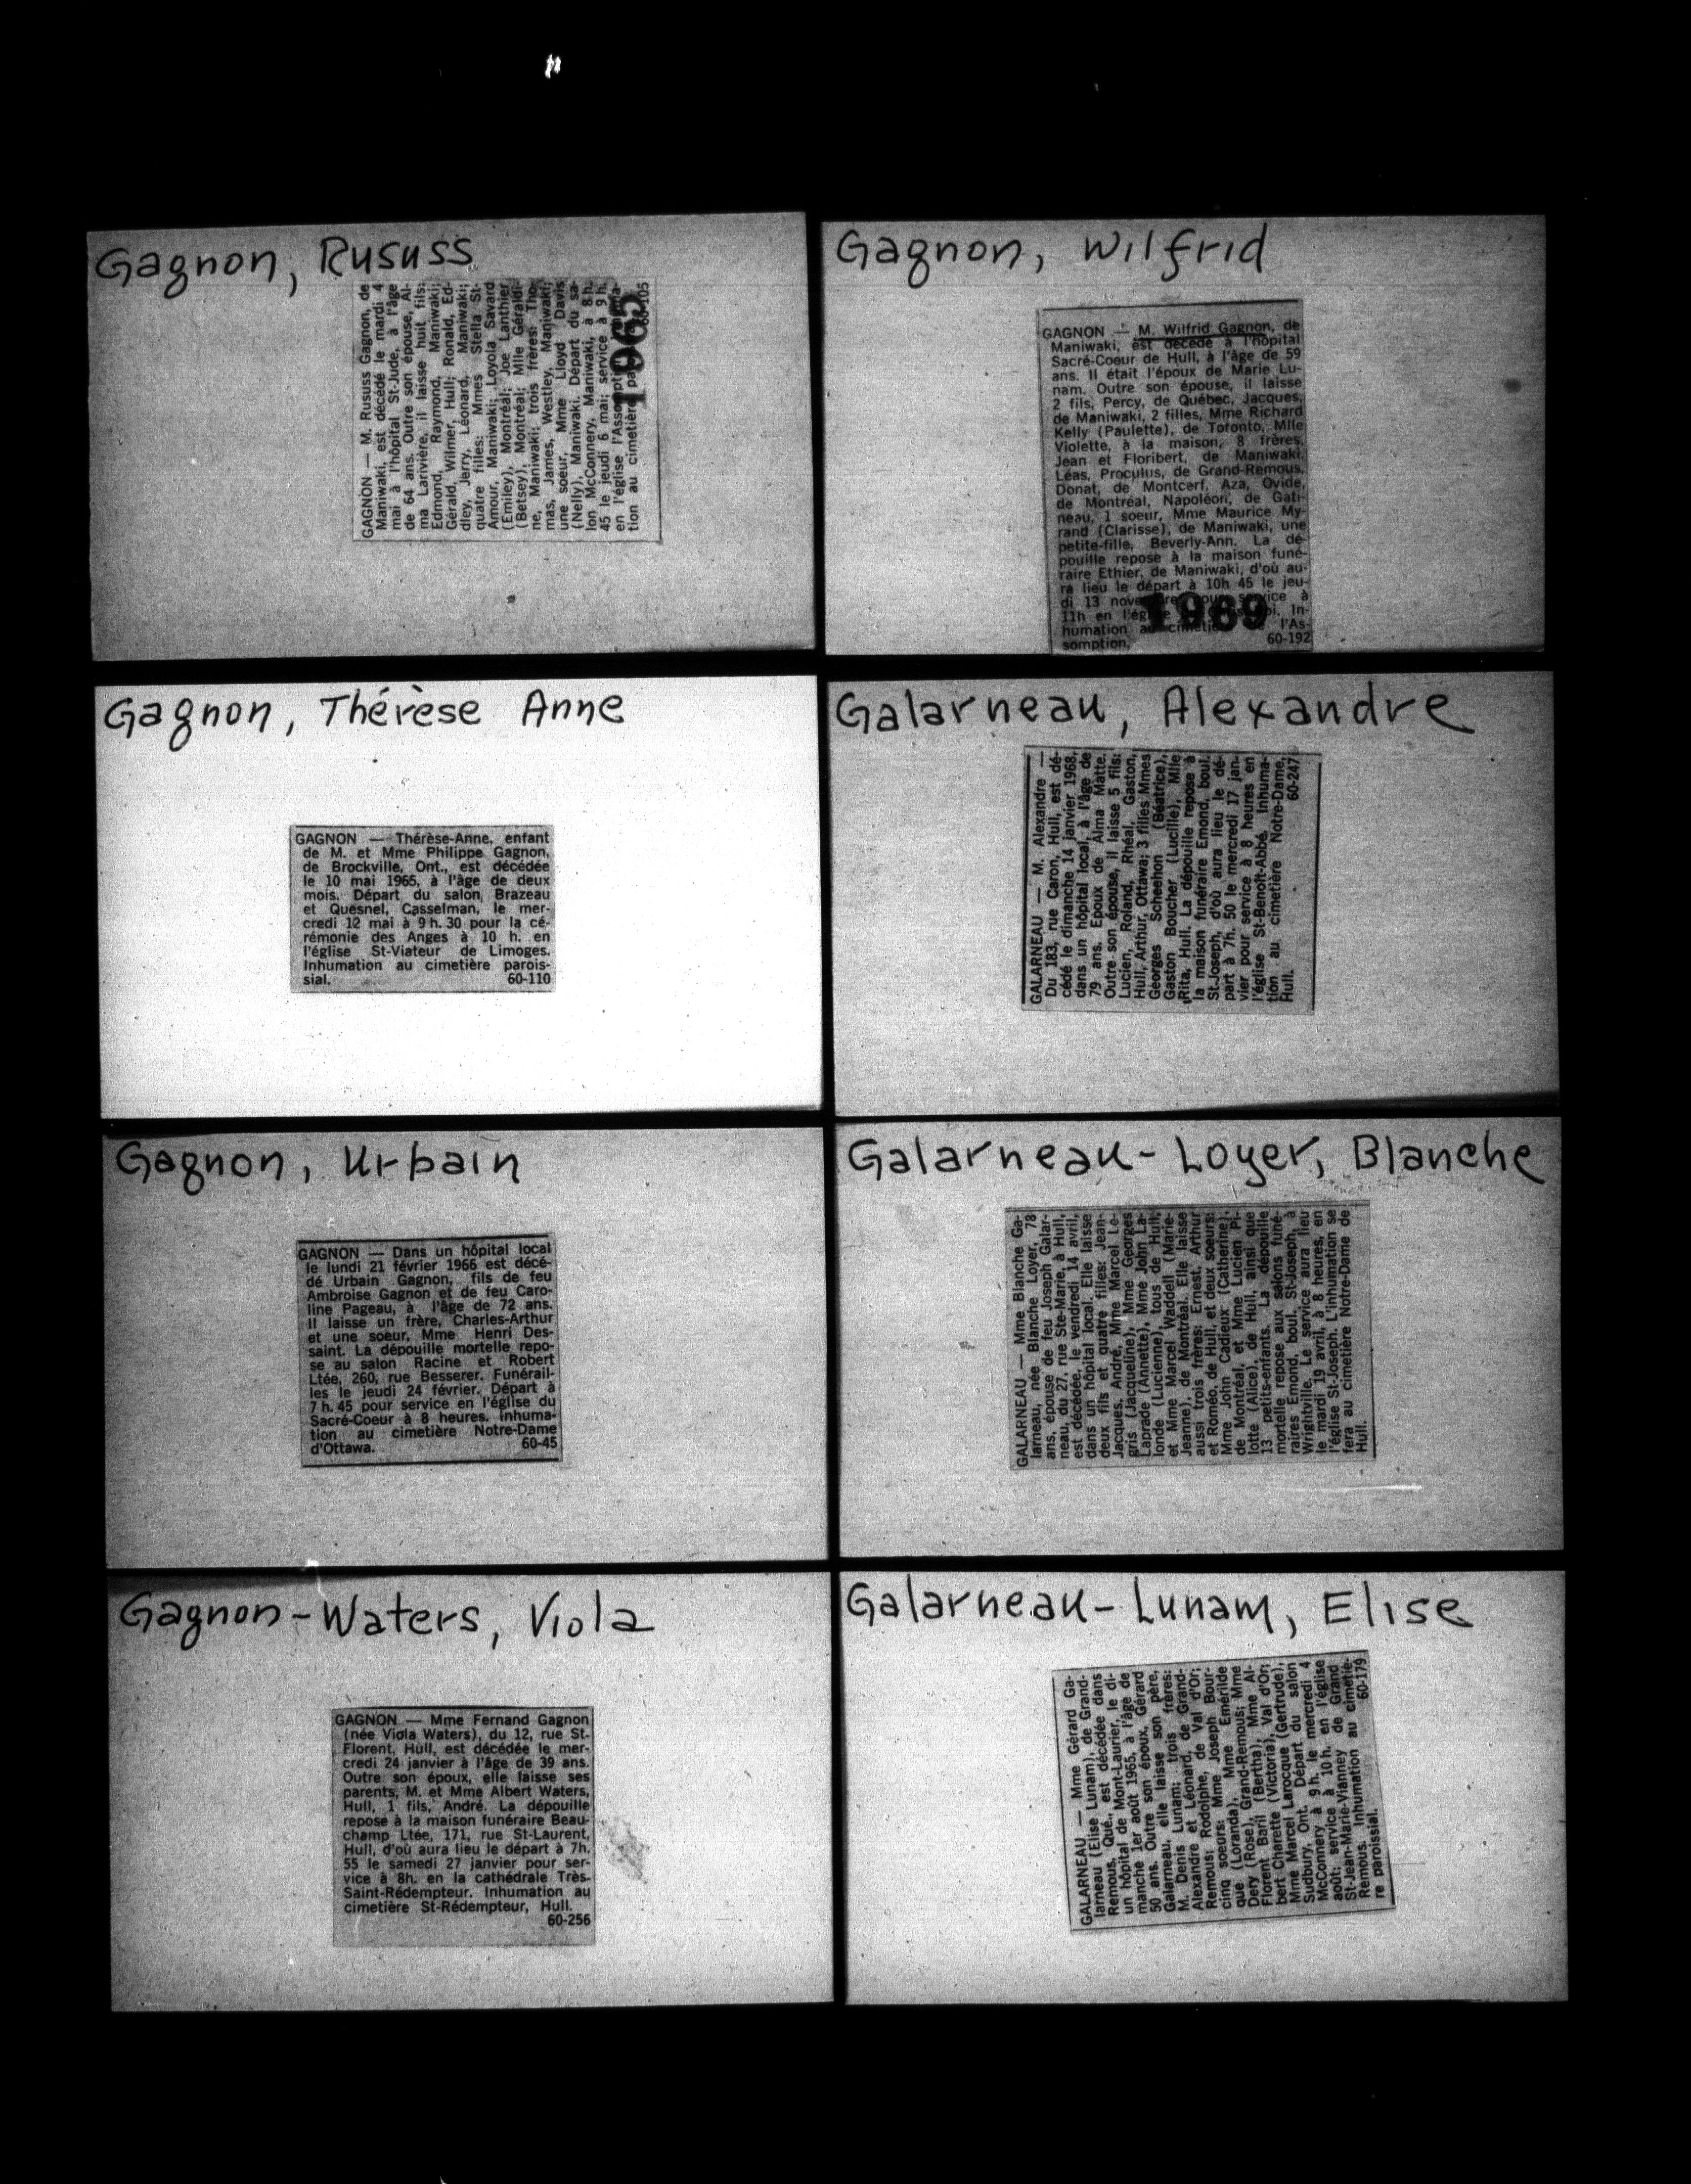 Gagnon, Rususs
GAGNON — M. Rususs Gagnon, de
Maniwaki, est décédé le mardi 4
mai à l'hôpital St-Jude, à l'âge
de 64 ans. Outre son épouse, Al-
ma Larivière, il laisse huit fils:
Edmond, Raymond, Maniwaki;
Gérald, Wilmer, Hull; Ronald, Ed-
dley, Jerry, Léonard, Maniwaki;
quatre filles: Mmes Stella St-
Amour, Maniwaki; Loyola Savard
(Emiley), Montréal; Joe Lanthier
(Betsey), Montréal; Mlle Géraldi-
ne, Maniwaki; trois frères: Tho-
mas, James, Westley, Maniwaki;
une soeur, Mme Lloyd Davis
(Nelly), Maniwaki. Départ du sa-
lon McConnery, Maniwaki, à 8 h.
45 le jeudi 6 mai; service à 9 h.
en l'église l'Assompti
tion au cimetière pa
60-105
1965
Gagnon, Wilfrid
GAGNON — M. Wilfrid Gagnon, de
Maniwaki, est décédé à l'hôpital
Sacré-Coeur de Hull, à l'âge de 59
ans. Il était l'époux de Marie Lu-
nam. Outre son épouse, il laisse
2 fils, Percy, de Québec, Jacques,
de Maniwaki, 2 filles, Mme Richard
Kelly (Paulette), de Toronto, Mlle
Violette, à la maison, 8 frères,
Jean et Floribert, de Maniwaki,
Léas, Proculus, de Grand-Remous,
Donat, de Montcerf, Aza, Ovide,
de Montréal, Napoléon, de Gati-
neau, 1 soeur, Mme Maurice My-
rand (Clarisse), de Maniwaki, une
petite-fille, Beverly-Ann. La dé-
pouille repose à la maison funé-
raire Ethier, de Maniwaki, d'où au-
ra lieu le départ à 10h 45 le jeu-
di 13 novembre pour service à
11h en l'église In-
humation au cimetière de l'As-
somption. 60-192
1969
Gagnon, Thérèse Anne
GAGNON — Thérèse-Anne, enfant
de M. et Mme Philippe Gagnon,
de Brockville, Ont., est décédée
le 10 mai 1965, à l'âge de deux
mois. Départ du salon, Brazeau
et Quesnel, Casselman, le mer-
credi 12 mai à 9 h. 30 pour la cé-
rémonie des Anges à 10 h. en
l'église St-Viateur de Limoges.
Inhumation au cimetière parois-
sial. 60-110
Galarneau, Alexandre
GALARNEAU — M. Alexandre —
Du 183, rue Caron, Hull, est dé-
cédé le dimanche 14 janvier 1968,
dans un hôpital local, à l'âge de
79 ans. Epoux de Alma Matte.
Outre son épouse, il laisse 5 fils:
Lucien, Roland, Rhéal, Gaston,
Hull, Arthur, Ottawa; 3 filles Mmes
Georges Scheehon (Béatrice),
Gaston Boucher (Lucille), Mlle
Rita, Hull. La dépouille repose à
la maison funéraire Emond, boul.
St-Joseph, d'où aura lieu le dé-
part à 7h. 50 le mercredi 17 jan-
vier pour service à 8 heures en
l'église St-Benoît-Abbé. Inhuma-
tion au cimetière Notre-Dame,
Hull. 60-247
Gagnon, Urbain
GAGNON — Dans un hôpital local
le lundi 21 février 1966 est décé-
dé Urbain Gagnon, fils de feu
Ambroise Gagnon et de feu Caro-
line Pageau, à l'âge de 72 ans.
Il laisse un frère, Charles-Arthur
et une soeur, Mme Henri Des-
saint. La dépouille mortelle repo-
se au salon Racine et Robert
Ltée, 260, rue Besserer. Funérail-
les le jeudi 24 février. Départ à
7 h. 45 pour service en l'église du
Sacré-Coeur à 8 heures. Inhuma-
tion au cimetière Notre-Dame
d'Ottawa. 60-45
Galarneau-Loyer, Blanche
GALARNEAU — Mme Blanche Ga-
larneau, née Blanche Loyer, 78
ans, épouse de feu Joseph Galar-
neau, du 27, rue Ste-Marie, à Hull,
est décédée, le vendredi 14 avril,
dans un hôpital local. Elle laisse
deux fils et quatre filles: Jean-
Jacques, André, Mme Marcel Le-
gris (Jacqueline), Mme Georges
Laprade (Annette), Mme John La-
londe (Lucienne), tous de Hull,
et Mme Marcel Waddell (Marie-
Jeanne), de Montréal. Elle laisse
aussi trois frères: Ernest, Arthur
et Roméo, de Hull, et deux soeurs:
Mme John Cadieux (Catherine),
de Montréal, et Mme Lucien Pi-
lotte (Alice), de Hull, ainsi que
13 petits-enfants. La dépouille
mortelle repose aux salons funé-
raires Emond, boul. St-Joseph, à
Wrightville. Le service aura lieu
le mardi 19 avril, à 8 heures, en
l'église St-Joseph. L'inhumation se
fera au cimetière Notre-Dame de
Hull.
Gagnon-Waters, Viola
GAGNON — Mme Fernand Gagnon
(née Viola Waters), du 12, rue St-
Florent, Hull, est décédée le mer-
credi 24 janvier à l'âge de 39 ans.
Outre son époux, elle laisse ses
parents, M. et Mme Albert Waters,
Hull, 1 fils, André. La dépouille
repose à la maison funéraire Beau-
champ Ltée, 171, rue St-Laurent,
Hull, d'où aura lieu le départ à 7h.
55 le samedi 27 janvier pour ser-
vice à 8h. en la cathédrale Très-
Saint-Rédempteur. Inhumation au
cimetière St-Rédempteur, Hull.
60-256
Galarneau-Lunam, Elise
GALARNEAU — Mme Gérard Ga-
larneau (Elise Lunam), de Grand-
Remous, Qué., est décédée dans
un hôpital de Mont-Laurier, le di-
manche 1er août 1965, à l'âge de
50 ans. Outre son époux, Gérard
Galarneau, elle laisse son père,
M. Denis Lunam; trois frères:
Alexandre et Léonard, de Grand-
Remous; Rodolphe, de Val d'Or;
cinq soeurs: Mme Joseph Bour-
que (Loranda), Mme Emérilde
Dery (Rose), Grand-Remous; Mme
Florent Baril (Bertha), Mme Al-
bert Charette (Victoria), Val d'Or;
Mme Marcel Larocque (Gertrude),
Sudbury, Ont. Départ du salon
McConnery à 9 h. le mercredi 4
août; service à 10 h. en l'église
St-Jean-Marie-Vianney de Grand
Remous. Inhumation au cimetiè-
re paroissial. 60-179